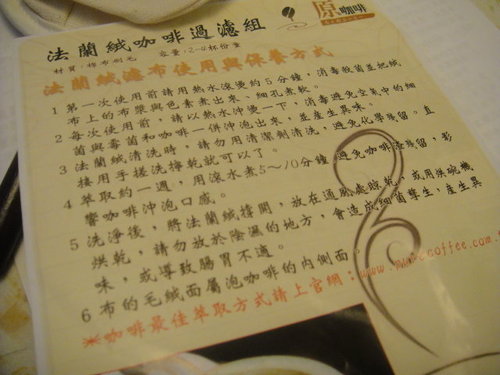 原咖啡
法蘭絨咖啡過濾組
材質：棉布刷毛 容量：2-4杯份量
法蘭絨濾布使用與保養方式
1 第一次使用前請用熱水滾燙約5分鐘，消毒殺菌並把絨
布上的布漿與色素煮出來，細孔煮軟。
2 每次使用前，請以熱水沖燙一下，消毒避免空氣中的細
菌與毒菌和咖啡一併沖泡出來，並產生異味。
3 法蘭絨清洗時，請勿用清潔劑清洗，避免化學殘留。直
接用手搓洗擰乾就可以了。
4 萃取約一週，用滾水煮5~10分鐘，避免咖啡渣殘留，影
響咖啡沖泡口感。
5 洗淨後，將法蘭絨撐開，放在通風處晾乾，或用烘碗機
烘乾，請勿放於陰濕的地方，會造成細菌孳生，產生異
味，或導致腸胃不適。
6 布的毛絨面屬泡咖啡的內側面。
※咖啡最佳萃取方式請上官網：www.
coffee.com.t